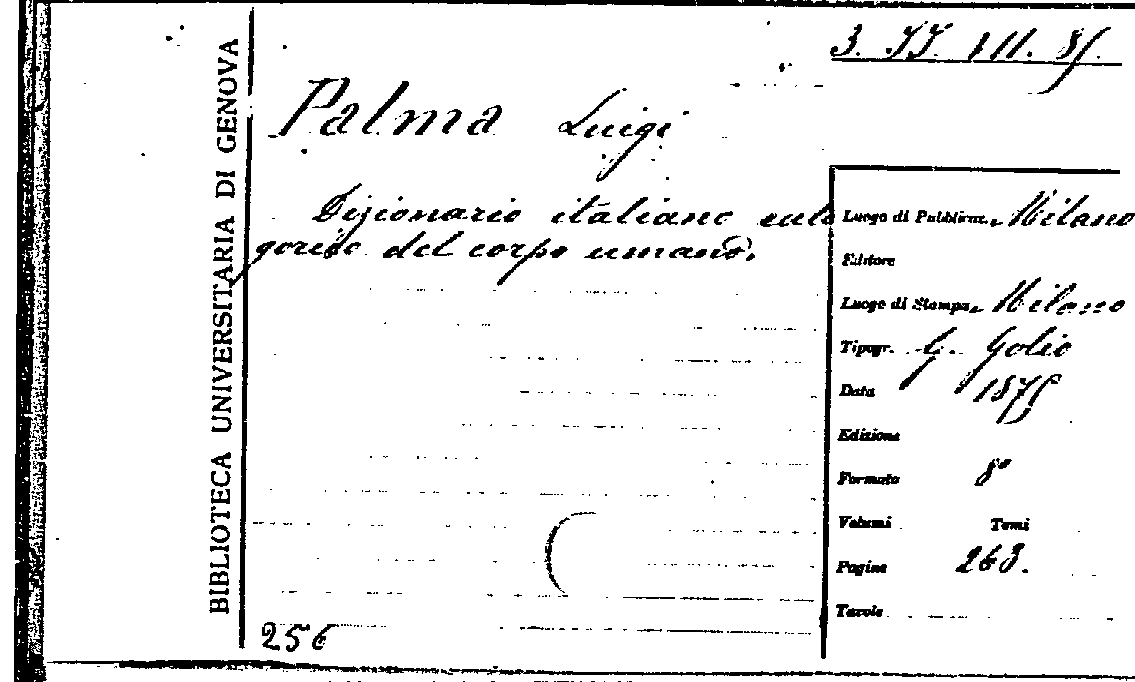 BIBLIOTECA UNIVERSITARIA DI GENOVA
Palma Luigi
Dizionario italiano cate
gorico del corpo umano.
256
Luogo di Pubblicaz. Milano
Editore
Luogo di Stampa Milano
Tipogr. G. Golio
Data
Edizione
Formato 8°
Volumi Tomi
Pagine 263.
Tavole